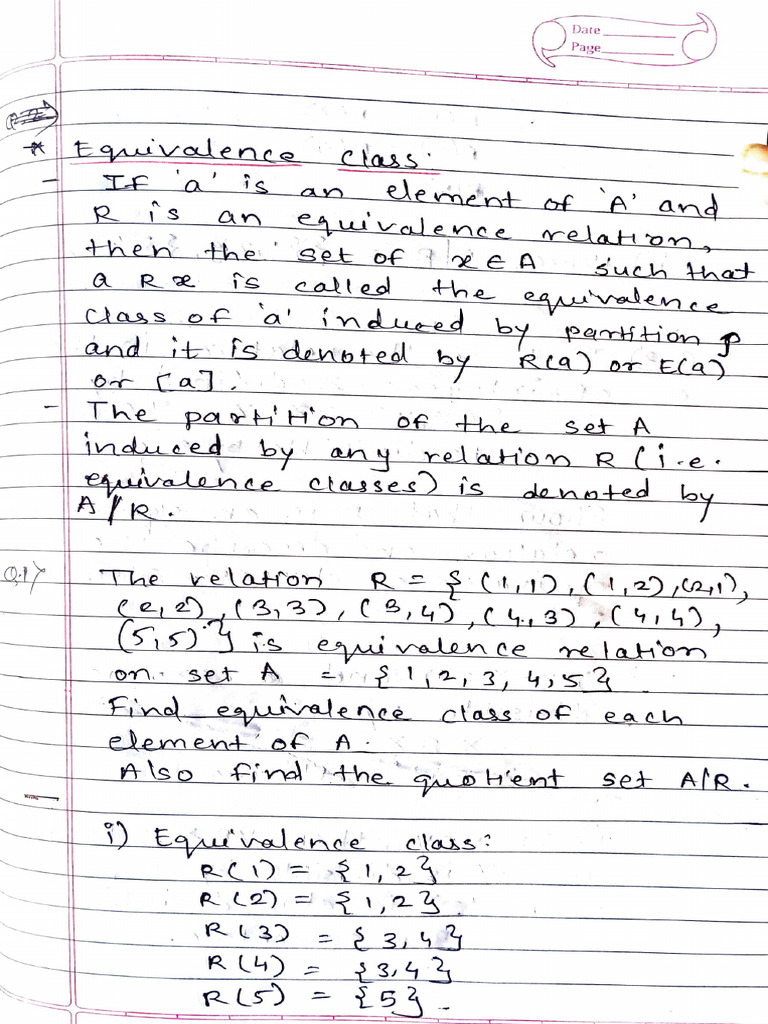 Date
Page
* Equivalence class:
- If 'a' is an element of 'A' and
R is an equivalence relation,
then the set of x ∈ A such that
a R x is called the equivalence
class of 'a' induced by partition P
and it is denoted by R(a) or E(a)
or [a].
- The partition of the set A
induced by any relation R (i.e.
equivalence classes) is denoted by
A/R.
Q.1> The relation R = { (1,1), (1,2), (2,1),
(2,2), (3,3), (3,4), (4,3), (4,4),
(5,5) } is equivalence relation
on set A = {1,2,3,4,5}
Find equivalence class of each
element of A.
Also find the quotient set A/R.
i) Equivalence class:
R(1) = {1,2}
R(2) = {1,2}
R(3) = {3,4}
R(4) = {3,4}
R(5) = {5}